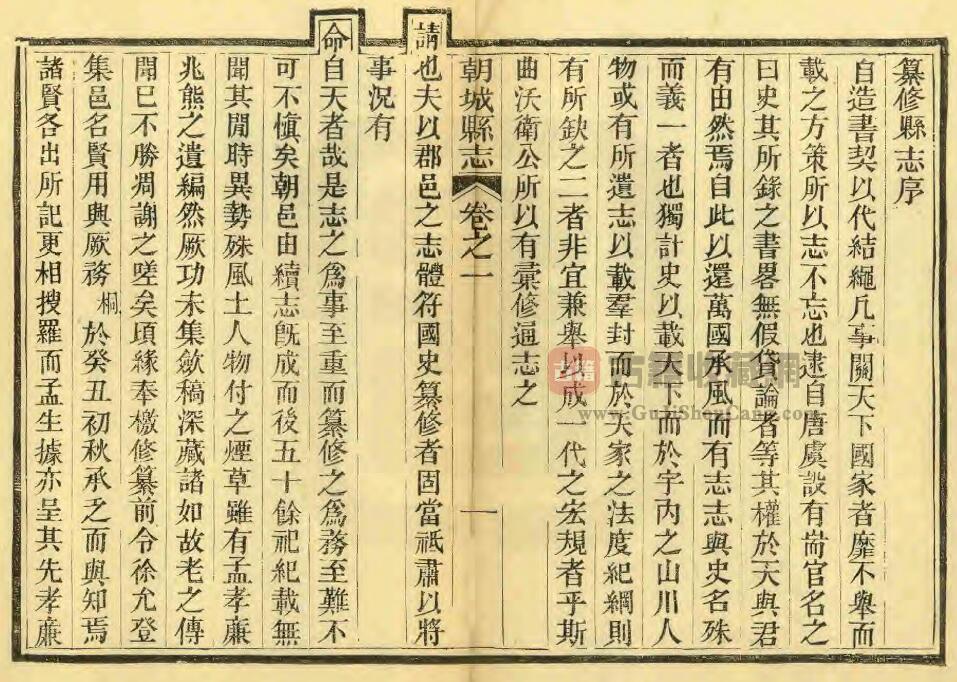 纂修縣志序
自造書契以代結繩凡事關天下國家者靡不舉而
載之方策所以志不忘也逮自唐虞設有耑官名之
曰史其所錄之書畧無假貸論者等其權於天與君
有由然焉自此以還萬國承風而有志志與史名殊
而義一者也獨計史以載天下而於宇內之山川人
物或有所遺志以載羣封而於天家之法度紀綱則
有所欽之二者非宜兼舉以成一代之宏規者乎斯
曲沃衛公所以有彙修通志之
朝城縣志
卷之一
一
請也夫以郡邑之志體符國史纂修者固當祗肅以將
事況有
命自天者哉是志之爲事至重而纂修之爲務至難不
可不愼矣朝邑由續志旣成而後五十餘祀紀載無
聞其閒時異勢殊風土人物付之煙草雖有孟孝廉
兆熊之遺編然厥功未集斂稿深藏諸如故老之傳
聞已不勝凋謝之嗟矣頃緣奉檄修纂前令徐允登
集邑名賢用興厥務桐於癸丑初秋承乏而與知焉
諸賢各出所記更相搜羅而孟生據亦呈其先孝廉
古籍
古籍收藏網
www.GujiShouCang.com